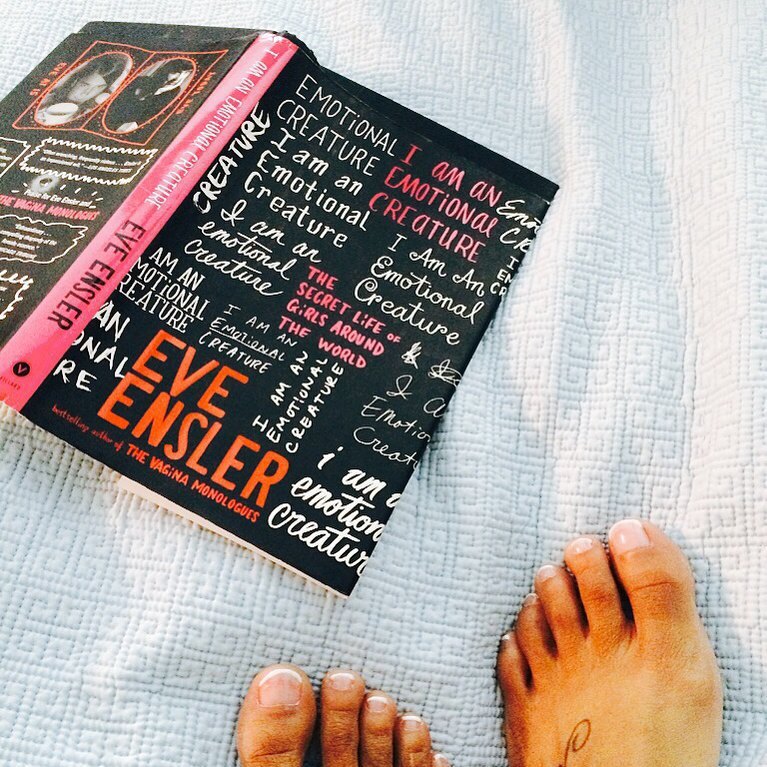 EVE AT 15
THE VAGINA MONOLOGUES
I AM AN EMOTIONAL CREATURE
EVE ENSLER
V
VILLARD
EMOTIONAL
CREATURE
CREATURE
I am an
Emotional
Creature
I AM AN
EMOTIONAL
CREATURE
I am an
emotional
creature
I Am An
Emotional
Creature
THE
SECRET LIFE OF
GIRLS AROUND
THE WORLD
AM AN
EMOTIONAL
CREATURE
I AM AN
EMOTIONAL
CREATURE
AM AN
EMOTIONAL
CREATURE
AN
ONAL
RE
EVE
ENSLER
bestselling author of THE VAGINA MONOLOGUES
I A
Emotion
Creatu
i am a
emotion
creatur